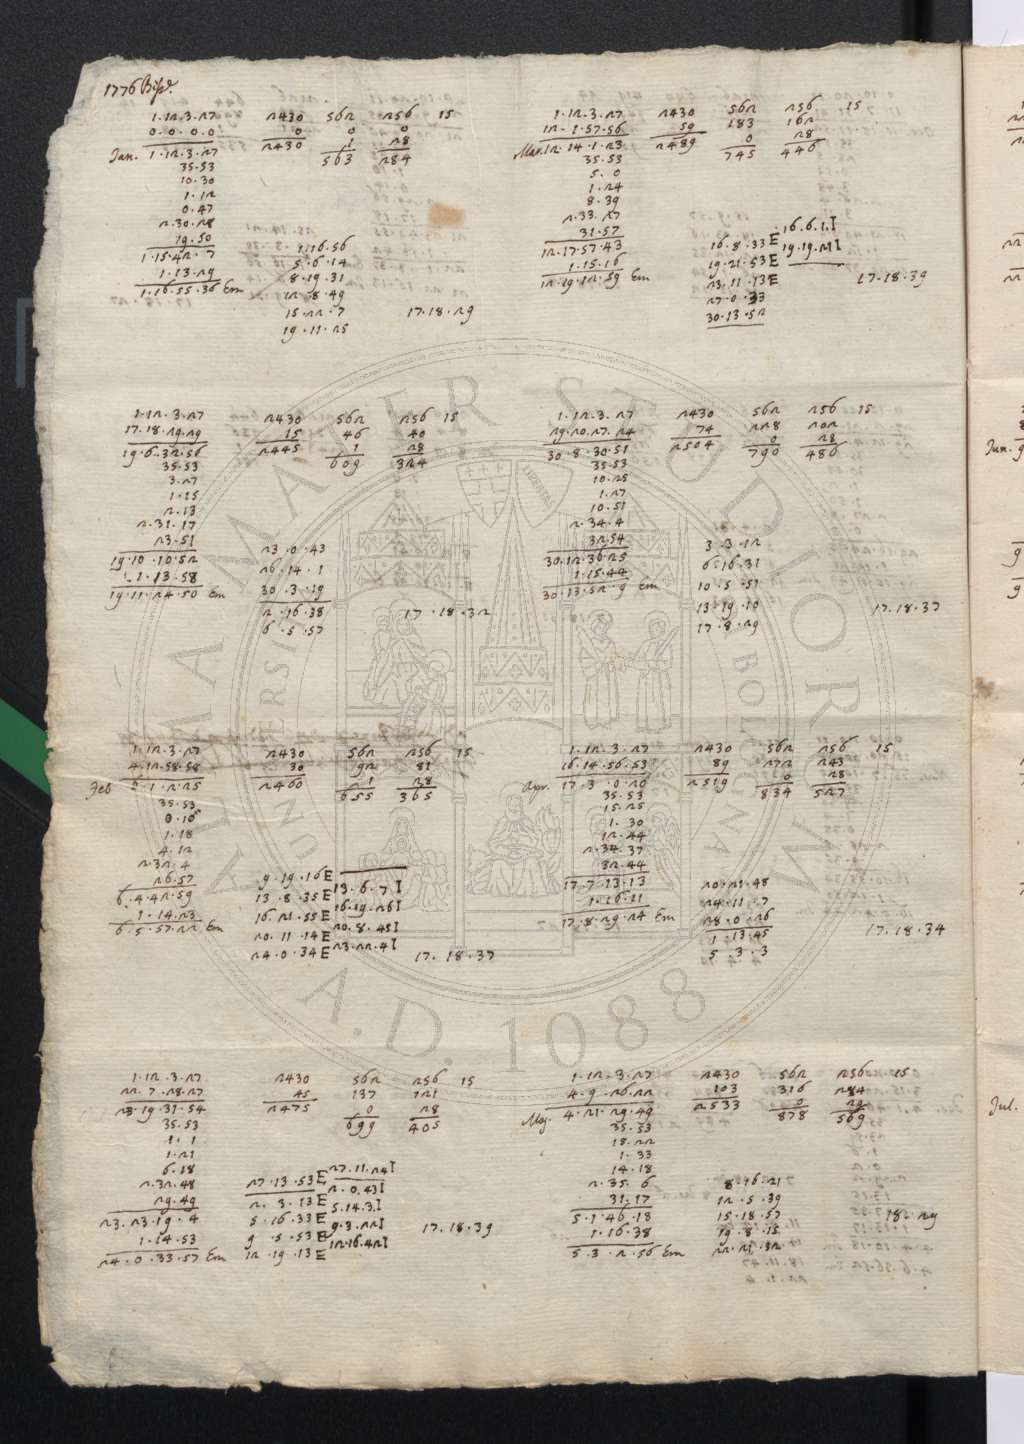 1776 Biss.
1.12.3.27 2430 562 256 15
0.0.0.0 0 0 0
Jan. 1.12.3.27 2430 1 28
35.53 563 284
10.30
1.12
0.47
2.30.28
19.50
1.15.42.7
1.13.29
1.16.55.36 Em
1.16.56
5.6.14
8.19.31
12.8.49
15.22.7 17.18.29
19.11.25
1.12.3.27 2430 562 256 15
12.1.57.56 59 183 162
Mar. 12.14.1.23 2489 0 28
35.53 745 446
5.0
1.24
8.39
2.33.27
31.57
12.17.57.43
1.15.16
12.19.12.59 Em
16.8.33 E 16.6.1 I
19.21.53 E 19.19.21 I
23.11.13 E 17.18.39
27.0.33
30.13.52
1.12.3.27 2430 562 256 15
17.18.29.29 15 46 40
19.6.32.56 2445 1 28
35.53 609 324
3.27
1.15
2.13
2.31.17
23.51
19.10.10.52
1.13.58
19.11.24.50 Em
23.0.43
26.14.1
30.3.19
2.16.38 17.18.32
6.5.57
1.12.3.27 2430 562 256 15
29.20.27.24 74 228 202
30.8.30.51 2504 0 28
35.53 790 486
10.25
1.27
10.51
2.34.4
32.54
30.12.36.25
1.15.44
30.13.52.9 Em
3.3.12
6.16.31
10.5.51
13.19.10 17.18.37
17.8.29
1.12.3.27 2430 562 256 15
4.12.58.58 30 92 81
Feb 6.1.2.25 2460 1 28
35.53 655 365
0.16
1.18
4.12
2.32.4
26.57
6.4.42.59
1.14.23
6.5.57.22 Em
9.19.16 E
13.8.35 E 13.6.7 I
16.21.55 E 16.19.26 I
20.11.14 E 20.8.45 I
24.0.34 E 23.22.4 I 17.18.37
1.12.3.27 2430 562 256 15
16.14.56.53 89 272 243
Apr. 17.3.0.20 2519 0 28
35.53 834 527
15.25
1.30
12.44
2.34.37
32.44
17.7.13.13
1.16.11
17.8.29.24 Em
20.21.48
24.11.7
28.0.26
1.13.45 17.18.34
5.3.3
1.12.3.27 2430 562 256 15
22.7.28.27 45 137 121
23.19.31.54 2475 0 28
35.53 699 405
1.1
1.21
6.18
2.32.48
29.49
23.23.19.4
1.14.53
24.0.33.57 Em
27.13.53 E 27.11.24 I
2.3.13 E 2.0.43 I
5.16.33 E 5.14.3 I
9.5.53 E 9.3.22 I 17.18.39
12.19.13 E 12.16.42 I
1.12.3.27 2430 562 256 15
4.9.26.22 103 316 284
Maj. 4.21.29.49 2533 0 29
35.53 878 569
18.22
1.33
14.18
2.35.6
31.17
5.1.46.18
1.16.38
5.3.2.56 Em
8.16.21
12.5.39
15.18.57 18.29
19.8.15
22.21.32
Jun.
Jul.
ALMA MATER STUDIORUM
UNIVERSITÀ DI BOLOGNA
LIBERTAS
A.D. 1088